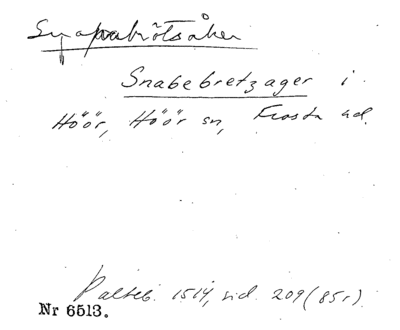 Snapabrötsåker
Snabebretzager i
Höör, Höör sn, Frosta hd.
Palteb. 1514, sid. 209 (85r)
Nr 6513.